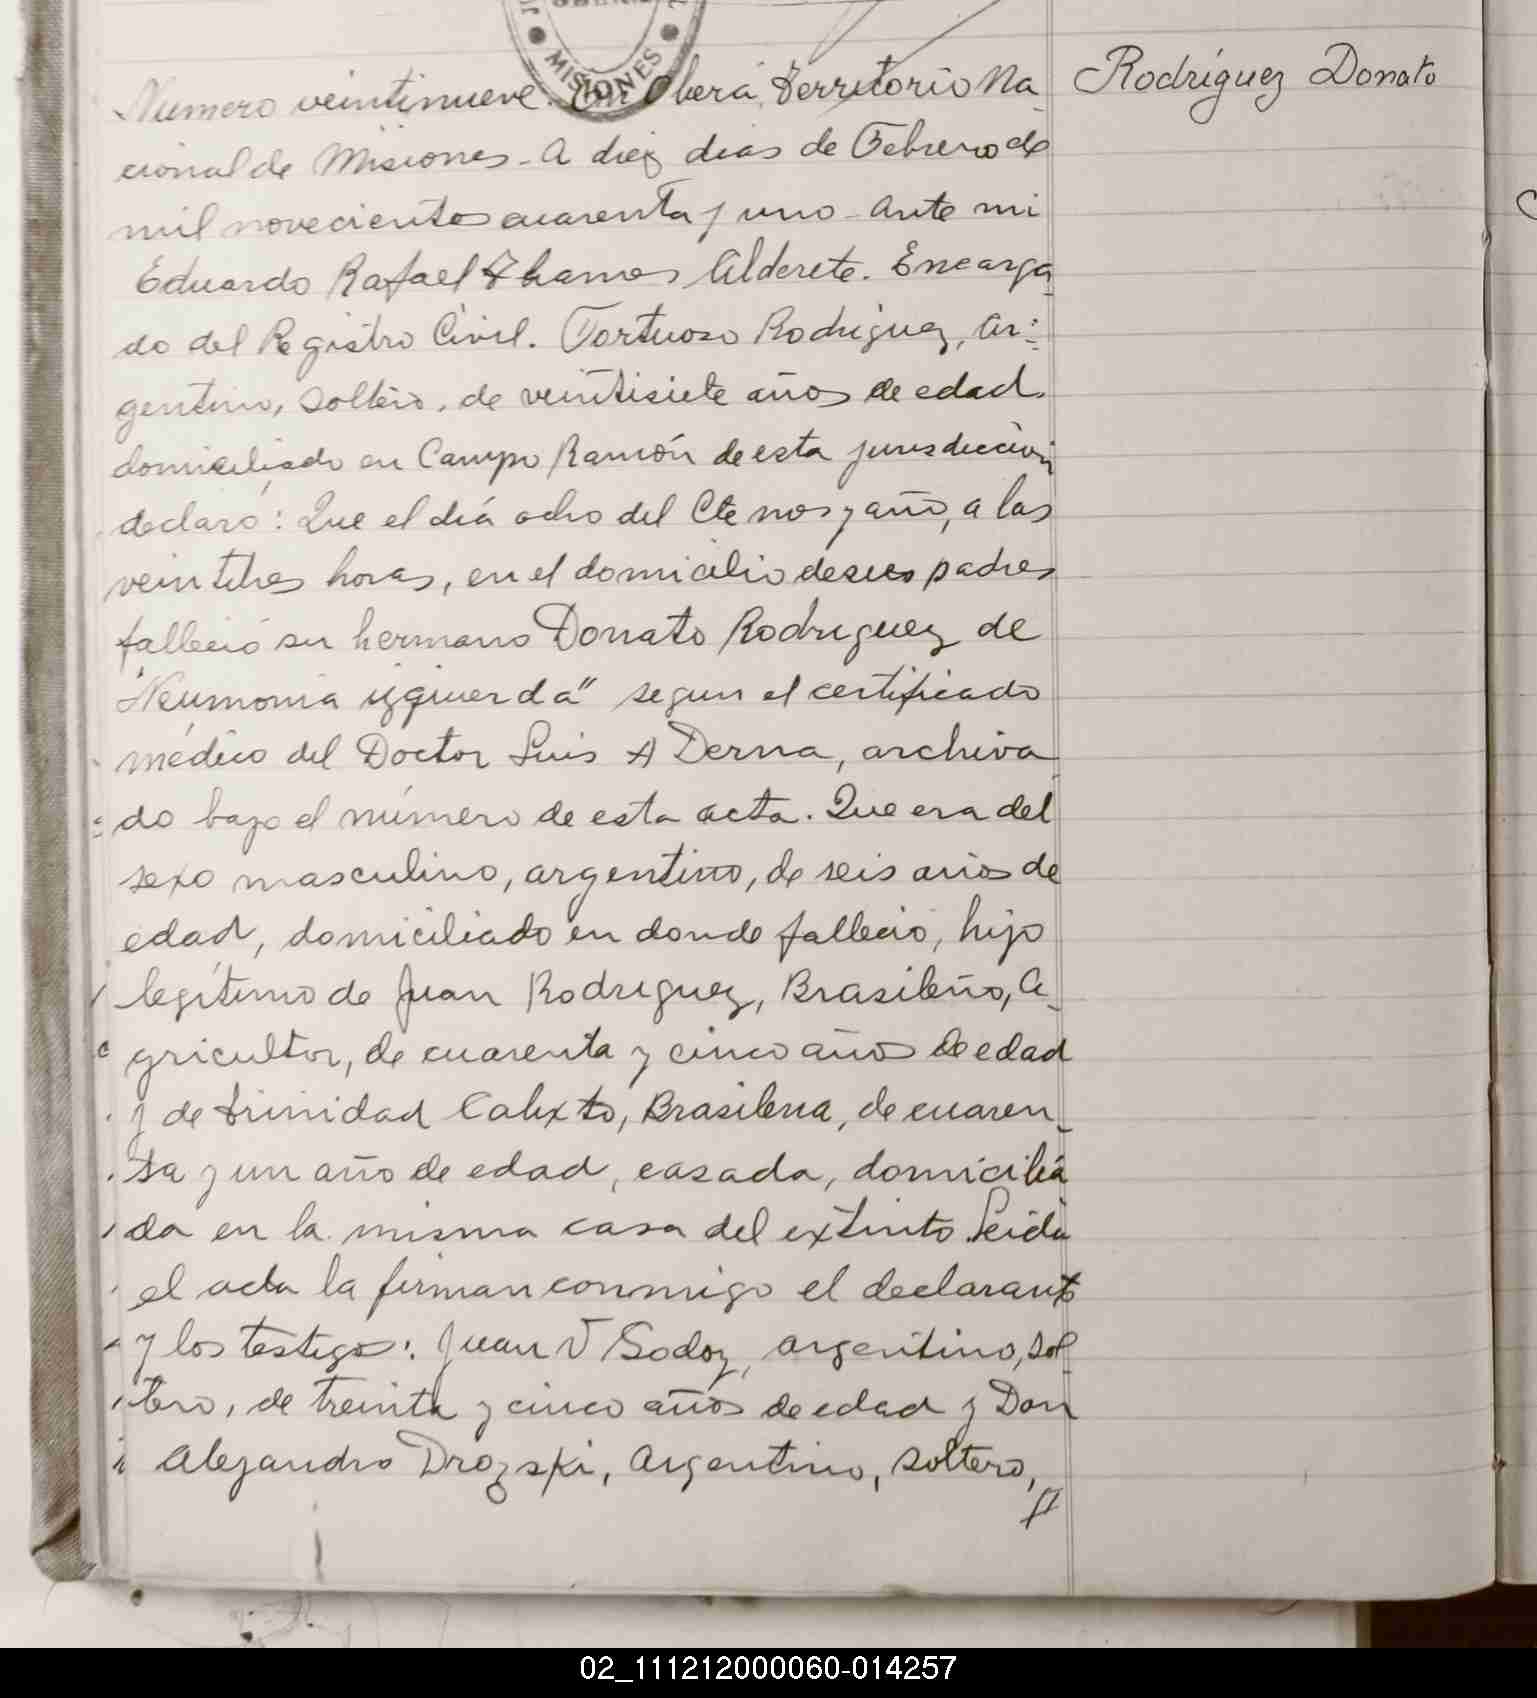 MISIONES
Rodríguez Donato
Numero veintinueve. En Oberá, Territorio Na_
cional de Misiones - A diez dias de Febrero de
mil novecientos cuarenta y uno - ante mi
Eduardo Rafael Alderete. Encarga_
do del Registro Civil. Fortuoso Rodriguez, Ar_
gentino, soltero, de veintisiete años de edad
domiciliado en Campo Ramón de esta jurisdicción
declaró: Que el día ocho del Cte mes y año, a las
veintitres horas, en el domicilio de sus padres
falleció su hermano Donato Rodriguez de
"Neumonia izquierda" segun el certificado
médico del Doctor Luis A Derna, archiva
do bajo el número de esta acta. Que era del
sexo masculino, argentino, de seis años de
edad, domiciliado en donde falleció, hijo
legítimo de Juan Rodriguez, Brasileño, a_
gricultor, de cuarenta y cinco años de edad
y de trinidad Calixto, Brasilena, de cuaren_
ta y un año de edad, casada, domicilia
da en la misma casa del extinto. Leida
el acta la firman conmigo el declarante
y los testigos: Juan V Godoy, argentino, sol_
tero, de treinta y cinco años de edad y Don
Alejandro Drozski, Argentino, soltero,
02_111212000060-014257